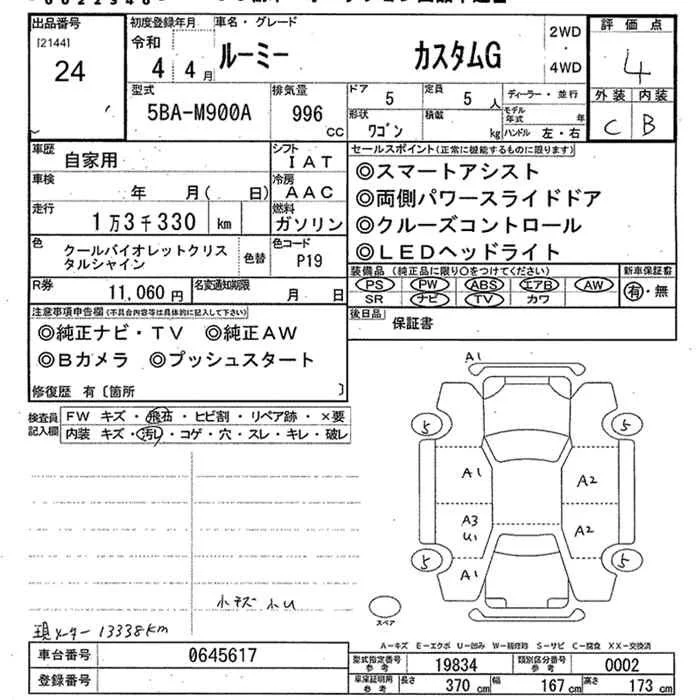 出品番号
[2144]
24
初度登録年月
令和
4 4月
車名・グレード
ルーミー カスタムG
2WD
・
4WD
評価点
4
外装 内装
C B
型式
5BA-M900A
排気量
996
CC
ドア
5
定員
5 人
ディーラー・並行
形状
ワゴン
積載
kg
モデル年式 年
ハンドル 左・右
車歴
自家用
シフト
IAT
車検
年 月( 日)
冷房
AAC
走行
1万3千330 km
燃料
ガソリン
色
クールバイオレットクリス
タルシャイン
色替
色コード
P19
R券
11,060 円
名変通知期限
月 日
セールスポイント(正常に機能するものに限ります)
◎スマートアシスト
◎両側パワースライドドア
◎クルーズコントロール
◎LEDヘッドライト
装備品 (純正品に限り○をつけてください)
PS PW ABS エアB AW
SR ナビ TV カワ
新車保証書
有・無
後日品
保証書
注意事項申告欄(不具合内容等は具体的に記入して下さい)
◎純正ナビ・TV ◎純正AW
◎Bカメラ ◎プッシュスタート
修復歴 有〔箇所 〕
検査員
記入欄
FW キズ・飛石・ヒビ割・リペア跡・×要
内装 キズ・汚レ・コゲ・穴・スレ・キレ・破レ
A1
5 5
A1 A2
A3
U1
A2
5 A1 5
スペア
小キズ 小U
現メーター 13338km
A-キズ E-エクボ U-凹み W-補修跡 S-サビ C-腐食 XX-交換済
車台番号
0645617
登録番号
型式指定番号
参考
19834
類別区分番号
参考
0002
車庫証明用
参考
長さ 370 cm
幅 167 cm
高さ 173 cm